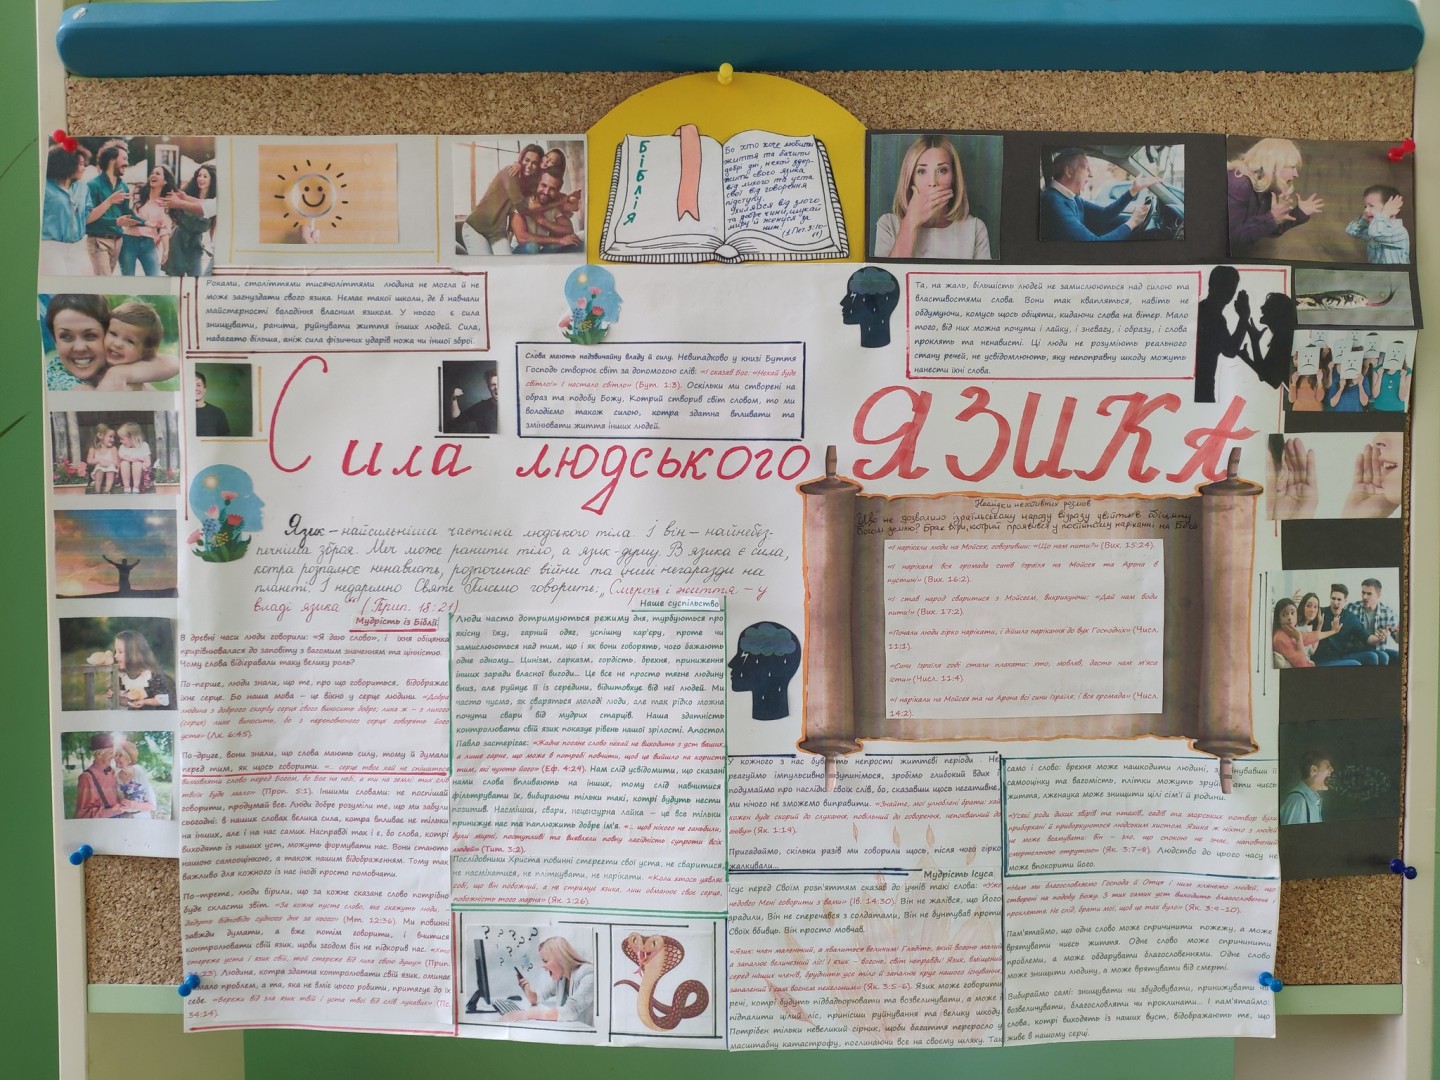 БІБЛІЯ
Бо хто хоче любити
життя та бачити
добрі дні, нехай здер-
жить свого язика
від лихого та уста
свої від говорення
підступу.
Ухиляйся від злого
та добре чини, шукай
миру й женися за
ним! (1 Пет. 3:10-
11)
Роками, століттями тисячоліттями людина не могла й не
може загнуздати свого язика. Немає такої школи, де б навчали
майстерності володіння власним язиком. У нього є сила
знищувати, ранити, руйнувати життя інших людей. Сила,
набагато більша, аніж сила фізичних ударів ножа чи іншої зброї.
Слова мають надзвичайну владу й силу. Невипадково у книзі Буття
Господь створює світ за допомогою слів: «І сказав Бог: «Нехай буде
світло!» І настало світло» (Бут. 1:3). Оскільки ми створені на
образ та подобу Божу, Котрий створив світ словом, то ми
володіємо також силою, котра здатна впливати та
змінювати життя інших людей.
Та, на жаль, більшість людей не замислюються над силою та
властивостями слова. Вони так квапляться, навіть не
обдумуючи, комусь щось обіцяти, кидаючи слова на вітер. Мало
того, від них можна почути і лайку, і зневагу, і образу, і слова
проклять та ненависті. Ці люди не розуміють реального
стану речей, не усвідомлюють, яку непоправну шкоду можуть
нанести їхні слова.
Сила людського ЯЗИКА
Язик – найсильніша частина людського тіла. І він – найнебез-
печніша зброя. Меч може ранити тіло, а язик - душу. В язика є сила,
котра розпалює ненависть, розпочинає війни та інші негаразди на
планеті. І недаремно Святе Письмо говорить: „Смерть і життя – у
владі язика" (Прип. 18:21)
Наслідки негативних розмов
Що не дозволило ізраїльському народу відразу увійти в обіцяну
Богом землю? Брак віри, котрий проявився у постійному наріканні на Бога
«І нарікали люди на Мойсея, говоривши: «Що нам пити?» (Вих. 15:24).
«І нарікала вся громада синів Ізраїля на Мойсея та Арона в
пустині» (Вих. 16:2).
«І став народ сваритися з Мойсеєм, викрикуючи: «Дай нам води
пити!» (Вих. 17:2).
«Почали люди гірко нарікати, і дійшло нарікання до вух Господніх» (Числ.
11:1).
«Сини Ізраїля собі стали плакати: хто, мовляв, дасть нам м'яса
їсти» (Числ. 11:4).
«І нарікали на Мойсея та на Арона всі сини Ізраїля; і вся громада» (Числ.
14:2).
Мудрість із Біблії
В древні часи люди говорили: «Я даю слово», і їхня обіцянка
прирівнювалася до заповіту з вагомим значенням та цінністю.
Чому слова відігравали таку велику роль?
По-перше, люди знали, що те, про що говориться, відображає
їхнє серце. Бо наша мова – це вікно у серце людини. «Добра
людина з доброго скарбу серця свого виносить добре, лиха ж – з лихого
(серця) лихе виносить, бо з переповненого серця говорять його
уста» (Лк. 6:45).
По-друге, вони знали, що слова мають силу, тому й думали
перед тим, як щось говорити. «... серце твоє хай не спішиться
виявляти слово перед Богом, бо Бог на небі, а ти на землі: тих слів
твоїх буде мало» (Проп. 5:1). Іншими словами: не поспішай
говорити, продумай все. Люди добре розуміли те, що ми забули
сьогодні: в наших словах велика сила, котра впливає не тільки
на інших, але і на нас самих. Насправді так і є, бо слова, котрі
виходять із наших уст, можуть формувати нас. Вони стають
нашою самооцінкою, а також нашим відображенням. Тому так
важливо для кожного із нас іноді просто помовчати.
По-третє, люди вірили, що за кожне сказане слово потрібно
буде скласти звіт. «За кожне пусте слово, яке скажуть люди, –
дадуть відповідь судного дня за нього» (Мт. 12:36). Ми повинні
завжди думати, а вже потім говорити, і вчитися
контролювати свій язик, щоби згодом він не підкорив нас. «Хто
стереже уста і язик свій, той стереже від лиха свою душу» (Прип.
21:23). Людина, котра здатна контролювати свій язик, оминає
чимало проблем, а та, яка не вміє цього робити, притягує до їх
себе. «Бережи від зла язик твій і уста твої від слів лукавих» (Пс.
34:14).
Наше суспільство
Люди часто дотримуються режиму дня, турбуються про
якісну їжу, гарний одяг, успішну кар'єру, проте чи
замислюються над тим, що і як вони говорять, чого бажають
одне одному... Цинізм, сарказм, гордість, брехня, приниження
інших заради власної вигоди... Це все не просто тягне людину
вниз, але руйнує її із середини, відштовхує від неї людей. Ми
часто чуємо, як сваряться молоді люди, але так рідко можна
почути свари від мудрих старців. Наша здатність
контролювати свій язик показує рівень нашої зрілості. Апостол
Павло застерігає: «Жадне погане слово нехай не виходить з уст ваших,
а лише гарне, що може в потребі повчити, щоб це вийшло на користь
тим, які чують його» (Еф. 4:29). Нам слід усвідомити, що сказані
нами слова впливають на інших, тому слід навчитися
фільтрувати їх, вибираючи тільки такі, котрі будуть нести
позитив. Насмішки, свари, нецензурна лайка – це все тільки
принижує нас та паплюжить добре ім'я. «... щоб нікого не ганьбили,
були мирні, поступливі та виявляли повну лагідність супроти всіх
людей» (Тит. 3:2).
Послідовники Христа повинні стерегти свої уста, не сваритися,
не насміхатися, не пліткувати, не нарікати. «Коли хтось уявляє
собі, що він побожний, а не стримує язика, лиш обманює своє серце,
побожність того марна» (Як. 1:26).
У кожного з нас бувають непрості життєві періоди. Не
реагуймо імпульсивно, зупинімося, зробімо глибокий вдих і
подумаймо про наслідки своїх слів, бо, сказавши щось негативне,
ми нічого не зможемо виправити. «Знайте, мої улюблені брати: хай
кожен буде скорий до слухання, повільний до говорення, непохапний до
гніву» (Як. 1:19).
Пригадаймо, скільки разів ми говорили щось, після чого гірко
жалкували...
Мудрість Ісуса
Ісус перед Своїм розп'яттям сказав до учнів такі слова: «Уже
недовго Мені говорити з вами» (Ів. 14:30). Він не жалівся, що Його
зрадили, Він не сперечався з солдатами, Він не бунтував проти
Своїх вбивць. Він просто мовчав.
«Язик: член маленький, а хвалиться великим! Глядіть, який вогонь малий,
а запалює величезний ліс! І язик – вогонь, світ неправди! Язик, вміщений
серед наших членів, бруднить усе тіло й запалює круг нашого існування,
запалений і сам вогнем пекельним» (Як. 3:5-6). Язик може говорити
речі, котрі будуть підбадьорювати та возвеличувати, а може і
підпалити цілий ліс, принісши руйнування та велику шкоду.
Потрібен тільки невеликий сірник, щоби багаття переросло у
масштабну катастрофу, поглинаючи все на своєму шляху. Так
само і слово: брехня може нашкодити людині, знецінувавши її
самооцінку та вагомість, плітки можуть зруйнувати чиєсь
життя, лженаука може знищити цілі сім'ї й родини.
«Усякі роди диких звірів та птахів, гадів та морських потвор були
приборкані й приборкуються людським хистом. Язика ж ніхто з людей
не може вгамувати: він – зло, що спокою не знає, наповнений
смертельною отрутою» (Як. 3:7-8). Людство до цього часу не
може впокорити його.
«Ним ми благословляємо Господа й Отця і ним клянемо людей, що
створені на подобу Божу. З тих самих уст виходить благословення і
прокляття. Не слід, брати мої, щоб це так було» (Як. 3:9-10).
Пам'ятаймо, що одне слово може спричинити пожежу, а може
врятувати чиєсь життя. Одне слово може спричинити
проблеми, а може обдарувати благословеннями. Одне слово
може знищити людину, а може врятувати від смерті.
Вибираймо самі: знищувати чи збудовувати, принижувати чи
возвеличувати, благословляти чи проклинати... І пам'ятаймо:
слова, котрі виходять із наших вуст, відображають те, що
живе в нашому серці.